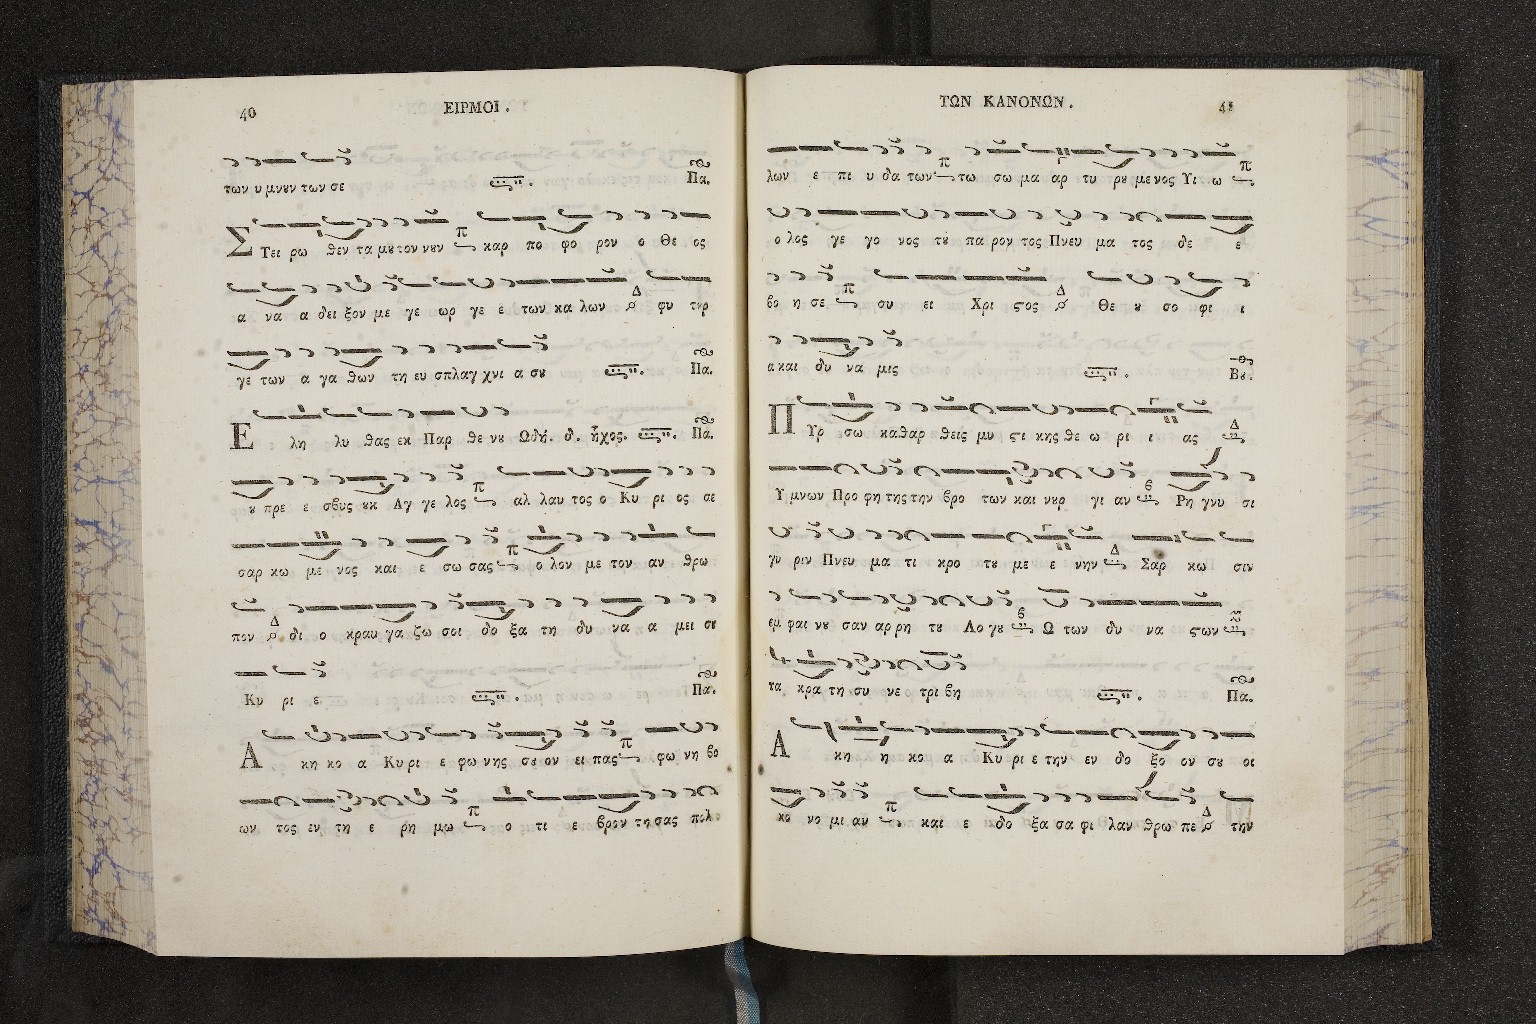 40 ΕΙΡΜΟΙ.
των υ μνȣν των σε Πα.
Σ Τει ρω θεν τα μȣ τον νȣν π καρ πο φο ρον ο Θε ος
α να α δει ξον με γε ωρ γε ε των κα λων Δ φυ τȣρ
γε των α γα θων τη ευ σπλαγ χνι α σȣ Πα.
Ε λη λυ θας εκ Παρ θε νȣ Ωδή. δ. ἦχος. Πα.
ȣ πρε ε σβυς ȣκ Αγ γε λος π αλ λαυ τος ο Κυ ρι ος σε
σαρ κω με νος και ε σω σας π ο λον με τον αν θρω
πον Δ δι ο κραυ γα ζω σοι δο ξα τη δυ να α μει σȣ
Κυ ρι ε Πα.
Α κη κο α Κυ ρι ε φω νης σȣ ον ει πας π φω νη βο
ων τος εν τη ε ρη μω π ο τι ε βρον τη σας πολ
ΤΩΝ ΚΑΝΟΝΩΝ. 41
λων ε πι υ δα των π τω σω μα αρ τυ ρȣ με νος Υι ω π
ο λος γε γο νος τȣ πα ρον τος Πνευ μα τος δε ε
βο η σε π συ ει Χρι ςος Δ Θε ȣ σο φι ι
α και δυ να μις Βȣ.
Π Υρ σω καθαρ θεις μυ ςι κης θε ω ρι ι ας Δ
Υ μνων Προ φη της την βρο των και νȣρ γι αν β Ρη γνυ σι
γυ ριν Πνευ μα τι κρο τȣ με ε νην Δ Σαρ κω σιν
εμ φαι νȣ σαν αρ ρη τȣ Λο γȣ β Ω των δυ να ςων
τα κρα τη συ νε τρι βη Πα.
Α κη η κο α Κυ ρι ε την εν δο ξο ον σȣ οι
κο νο μι αν π και ε δο ξα σα φι λαν θρω πε Δ την